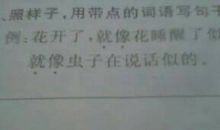 、照样子，用带点的词语写句子
例：花开了，就像花睡醒了似
就像虫子在说话似的。